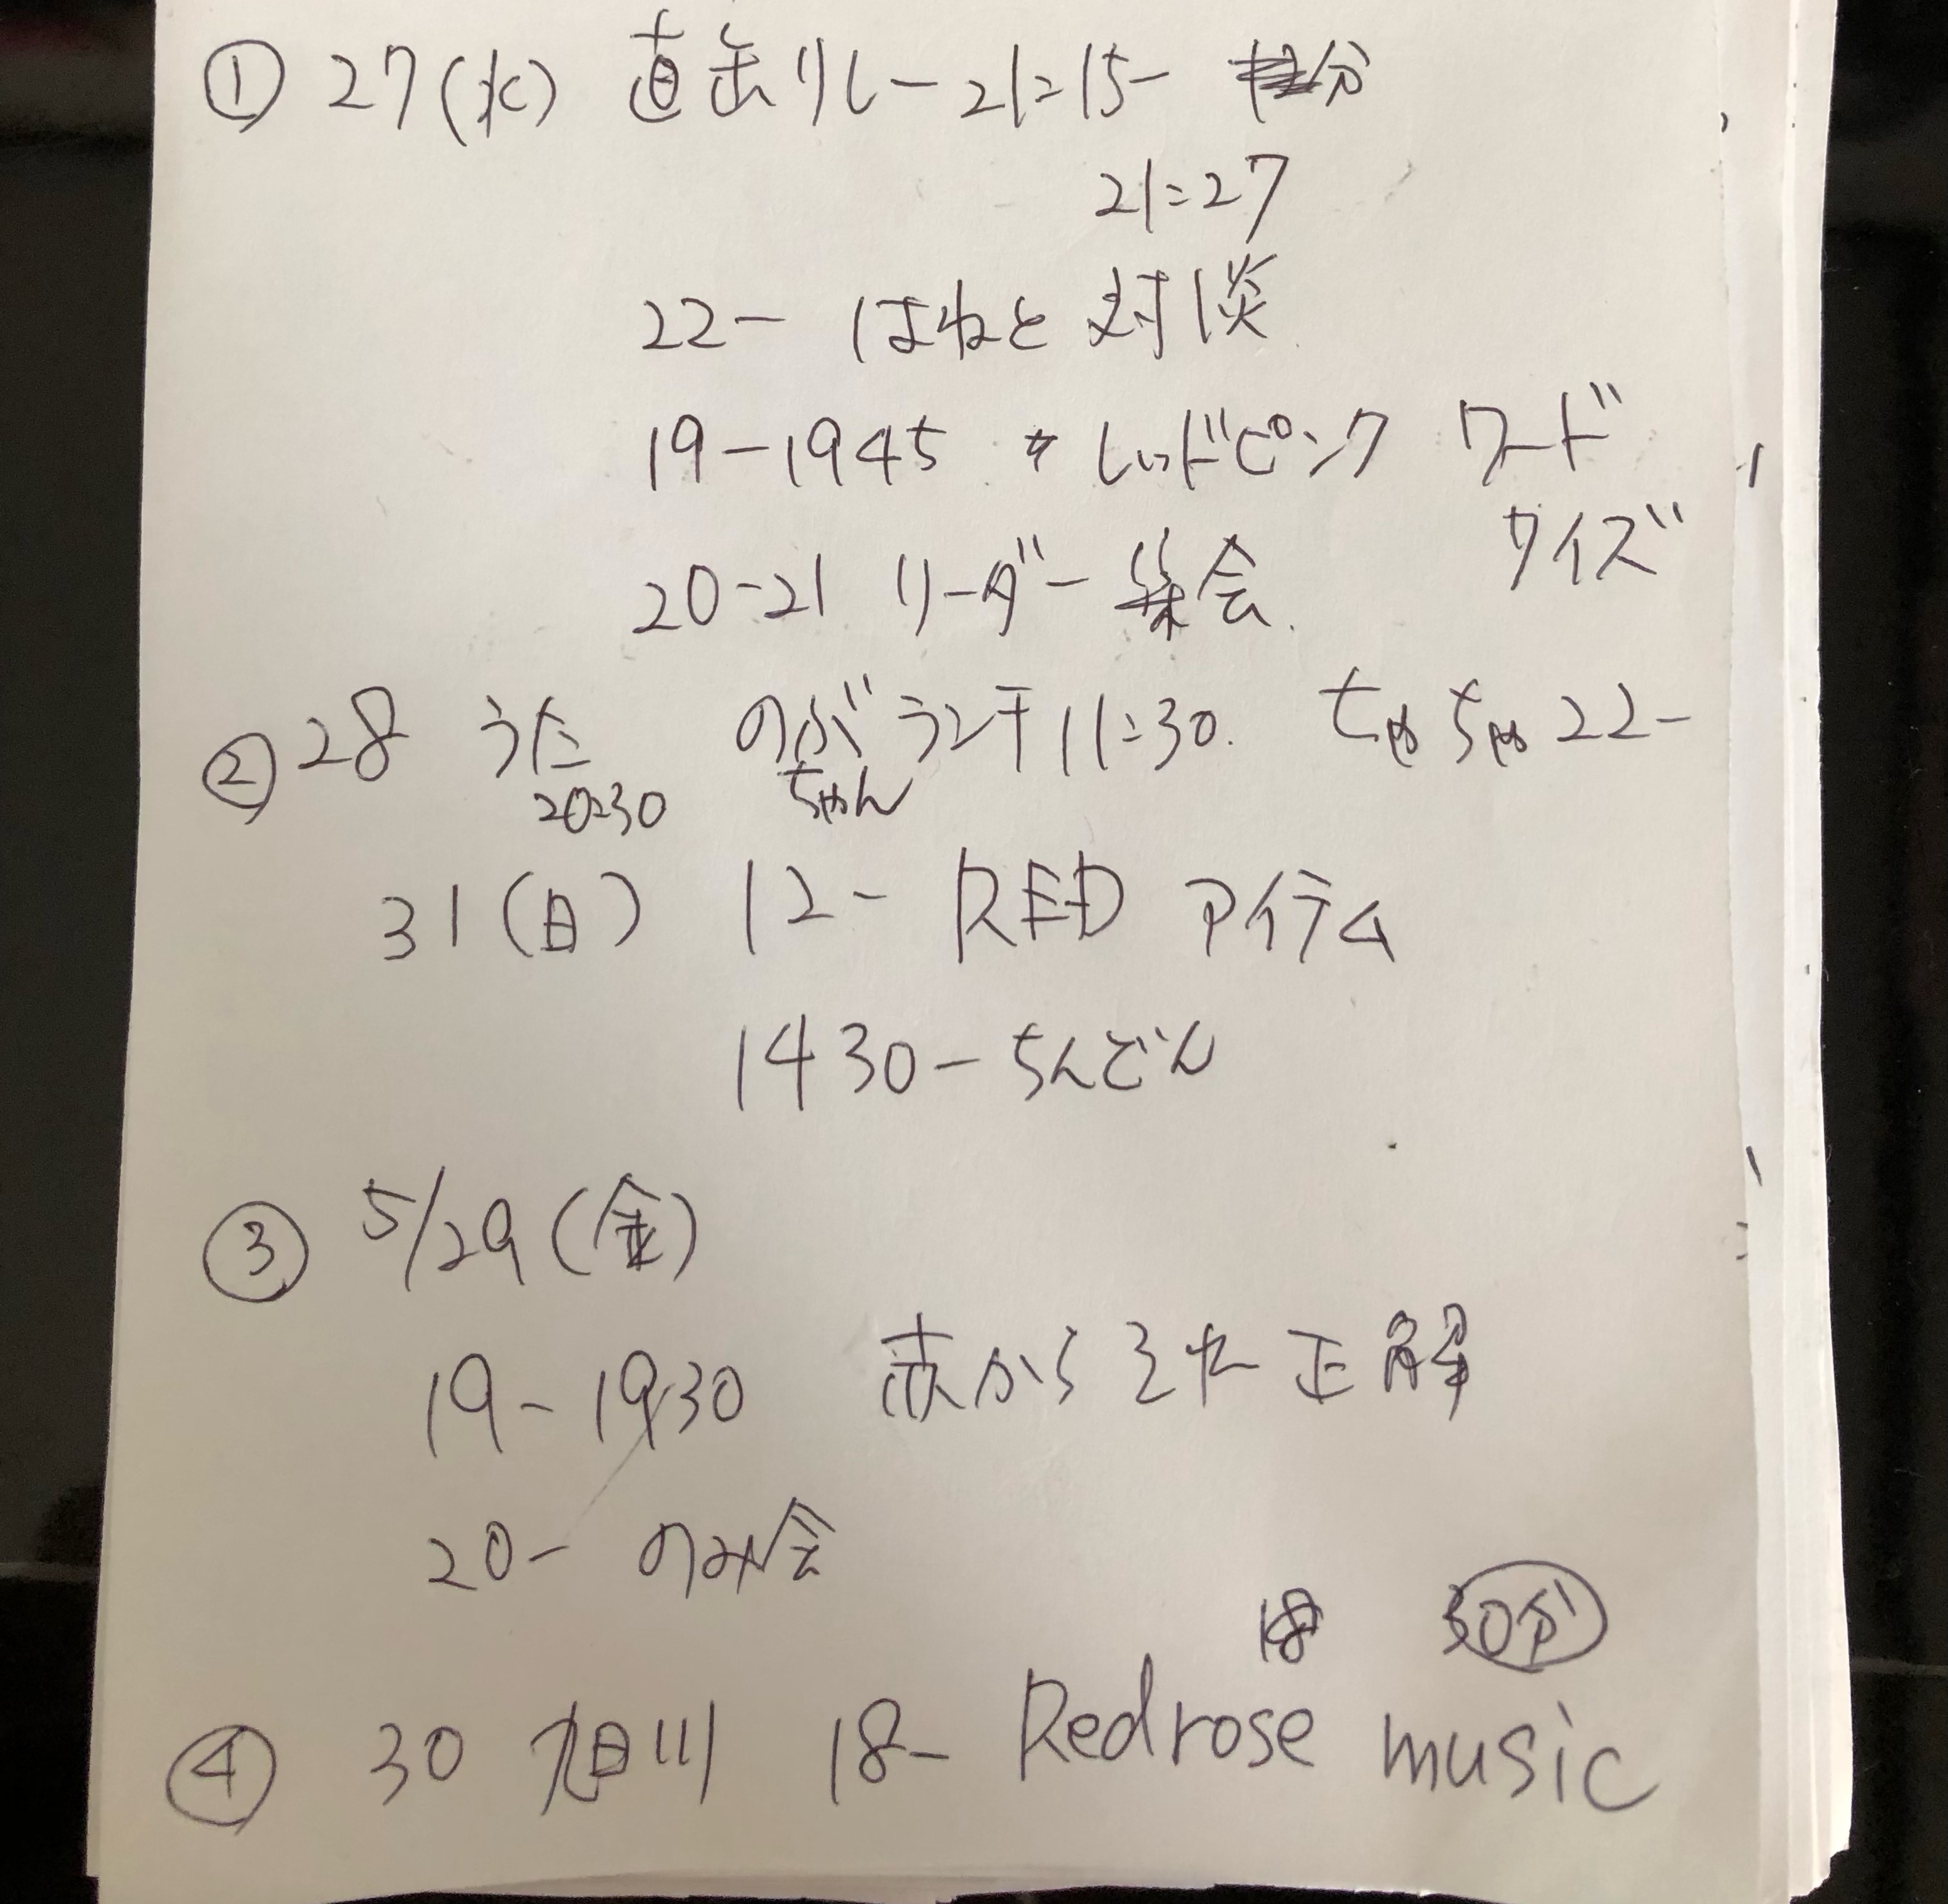 ① 27(水) 直缶リレー 21:15- 分
21:27
22- はねと対談
19-1945 レッドピンク ワード
クイズ
20-21 リーダー集会
② 28 うた のぶランチ 11:30. ちゃちゃ 22-
20:30 ちゃん
31(日) 12- RED アイテム
1430- ちんどん
③ 5/29(金)
19-1930 赤から正解
20- のみ会
18 30分
④ 30 旭川 18- Redrose music